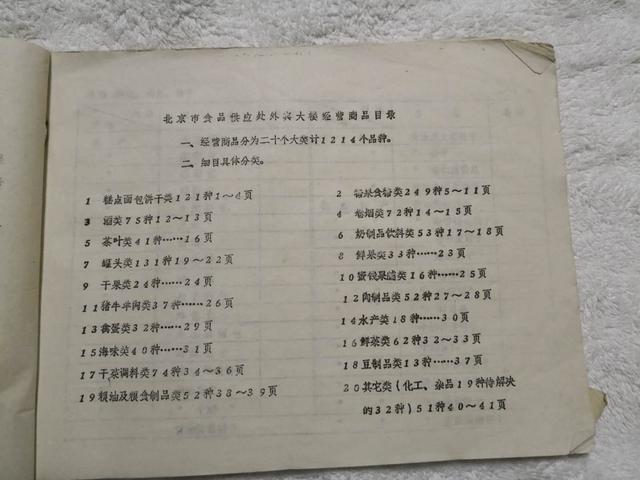 北京市食品供应处外宾大楼经营商品目录
一、经营商品分为二十个大类计1214个品种。
二、细目具体分类。
1 糕点面包饼干类121种1～4页
2 糖果食糖类249种5～11页
3 酒类75种12～13页
4 卷烟类72种14～15页
5 茶叶类41种……16页
6 奶制品饮料类53种17～18页
7 罐头类131种19～22页
8 鲜果类33种……23页
9 干果类24种……24页
10蜜饯果脯类16种……25页
11猪牛羊肉类37种……26页
12肉制品类52种27～28页
13禽蛋类32种……29页
14水产类18种……30页
15海味类40种……31页
16鲜菜类62种32～33页
17干菜调料类74种34～36页
18豆制品类13种……37页
19粮油及粮食制品类52种38～39页
20其它类（化工、杂品19种待解决
的32种）51种40～41页